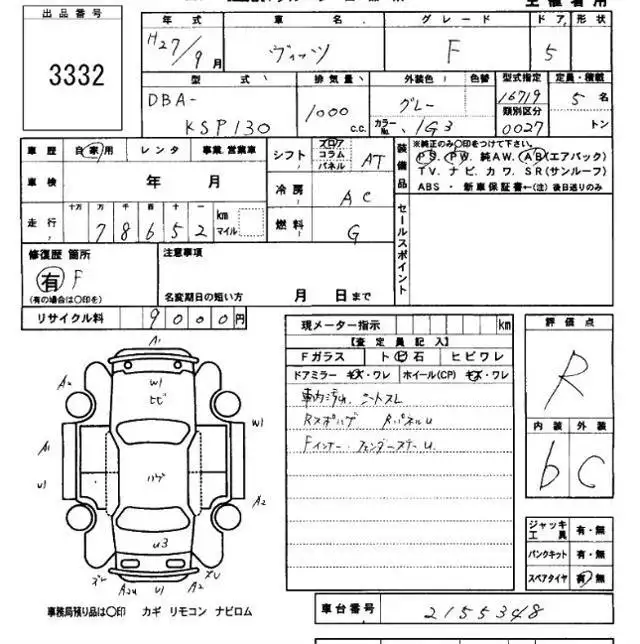 出品番号
3332
年式 車名 グレード ドア 形状
H27/9月 ヴィッツ F 5
型式 排気量 外装色 色替 型式指定 定員・積載
DBA-
KSP130
1000 c.c.
グレー
カラーNo. 1G3
16719
類別区分
0027
5名
トン
車歴 自家用 レンタ 事業 営業車
車検 年 月
走行 十万 万 千 百 十 一
78652 km マイル
シフト フロア コラム パネル AT
冷房 AC
燃料 G
装備品
※純正のみ○印をつけて下さい。
PS. PW. 純AW. AB(エアバック)
TV. ナビ. カワ. SR(サンルーフ)
ABS ・ 新車保証書←(注)後日送りのみ
セールスポイント
修復歴 箇所
有 F
(有の場合は○印を)
注意事項
名変期日の短い方 月 日まで
リサイクル料 9000円
現メーター指示 km
【査定員記入】
Fガラス ト ビ 石 ヒビワレ
ドアミラー キズ・ワレ ホイール(CP) キズ・ワレ
車内汚れ シートスレ
Rスポハゲ RパネルU
Fインナー・フェンダーステーU
評価点
R
内装 外装
b C
ジャッキ工具 有・無
パンクキット 有・無
スペアタイヤ 有・無
A1
W1
ヒビ
A2
W1
A1
U1
ハゲ
A2
U3
A2U
U1
A2
事務局預り品は○印 カギ リモコン ナビロム
車台番号 2155348